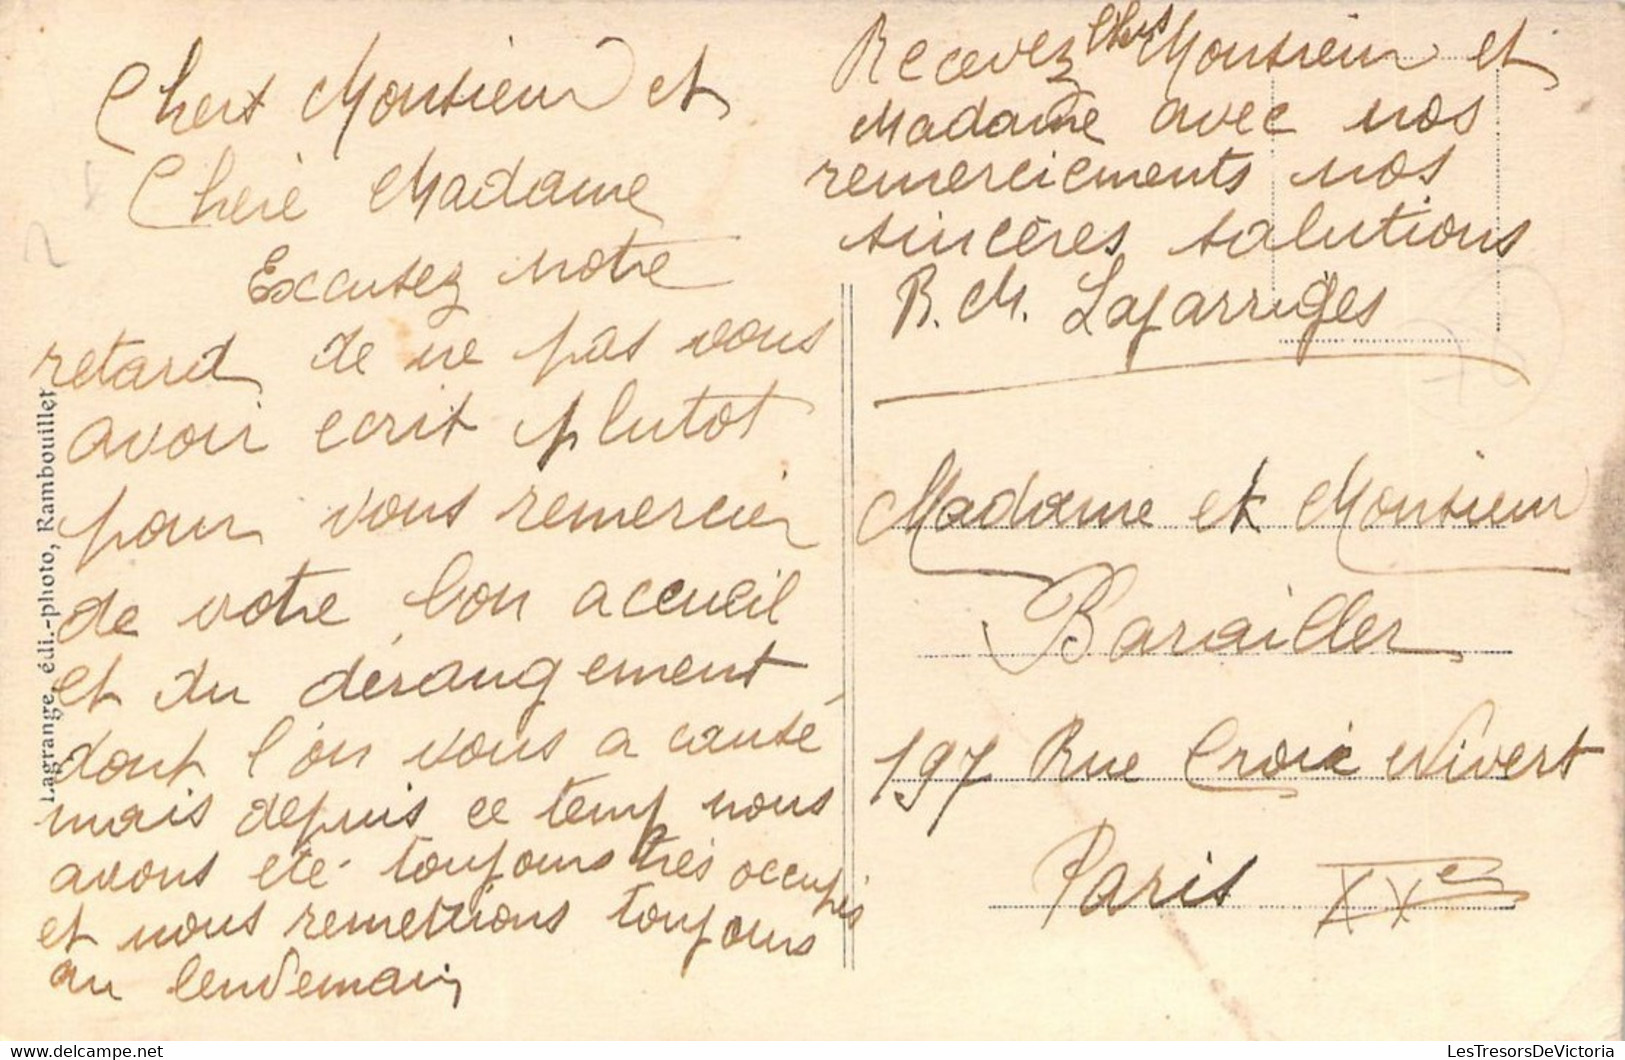 Chers Monsieur et
Chère Madame
Excusez notre
retard de ne pas vous
avoir ecrit plutot
pour vous remercier
de votre bon accueil
et du dérangement
dont l'on vous a causé
mais depuis ce temp nous
avons eté toujours très occupés
et nous remettions toujours
au lendemain
Recevez Chers Monsieur et
Madame avec nos
remerciements nos
sincères salutions
R. M. Lafarriges
Madame et Monsieur
Barailler
197 Rue Croix Nivert
Paris XXe
Lagrange, édi.-photo, Rambouillet
LesTresorsDeVictoria